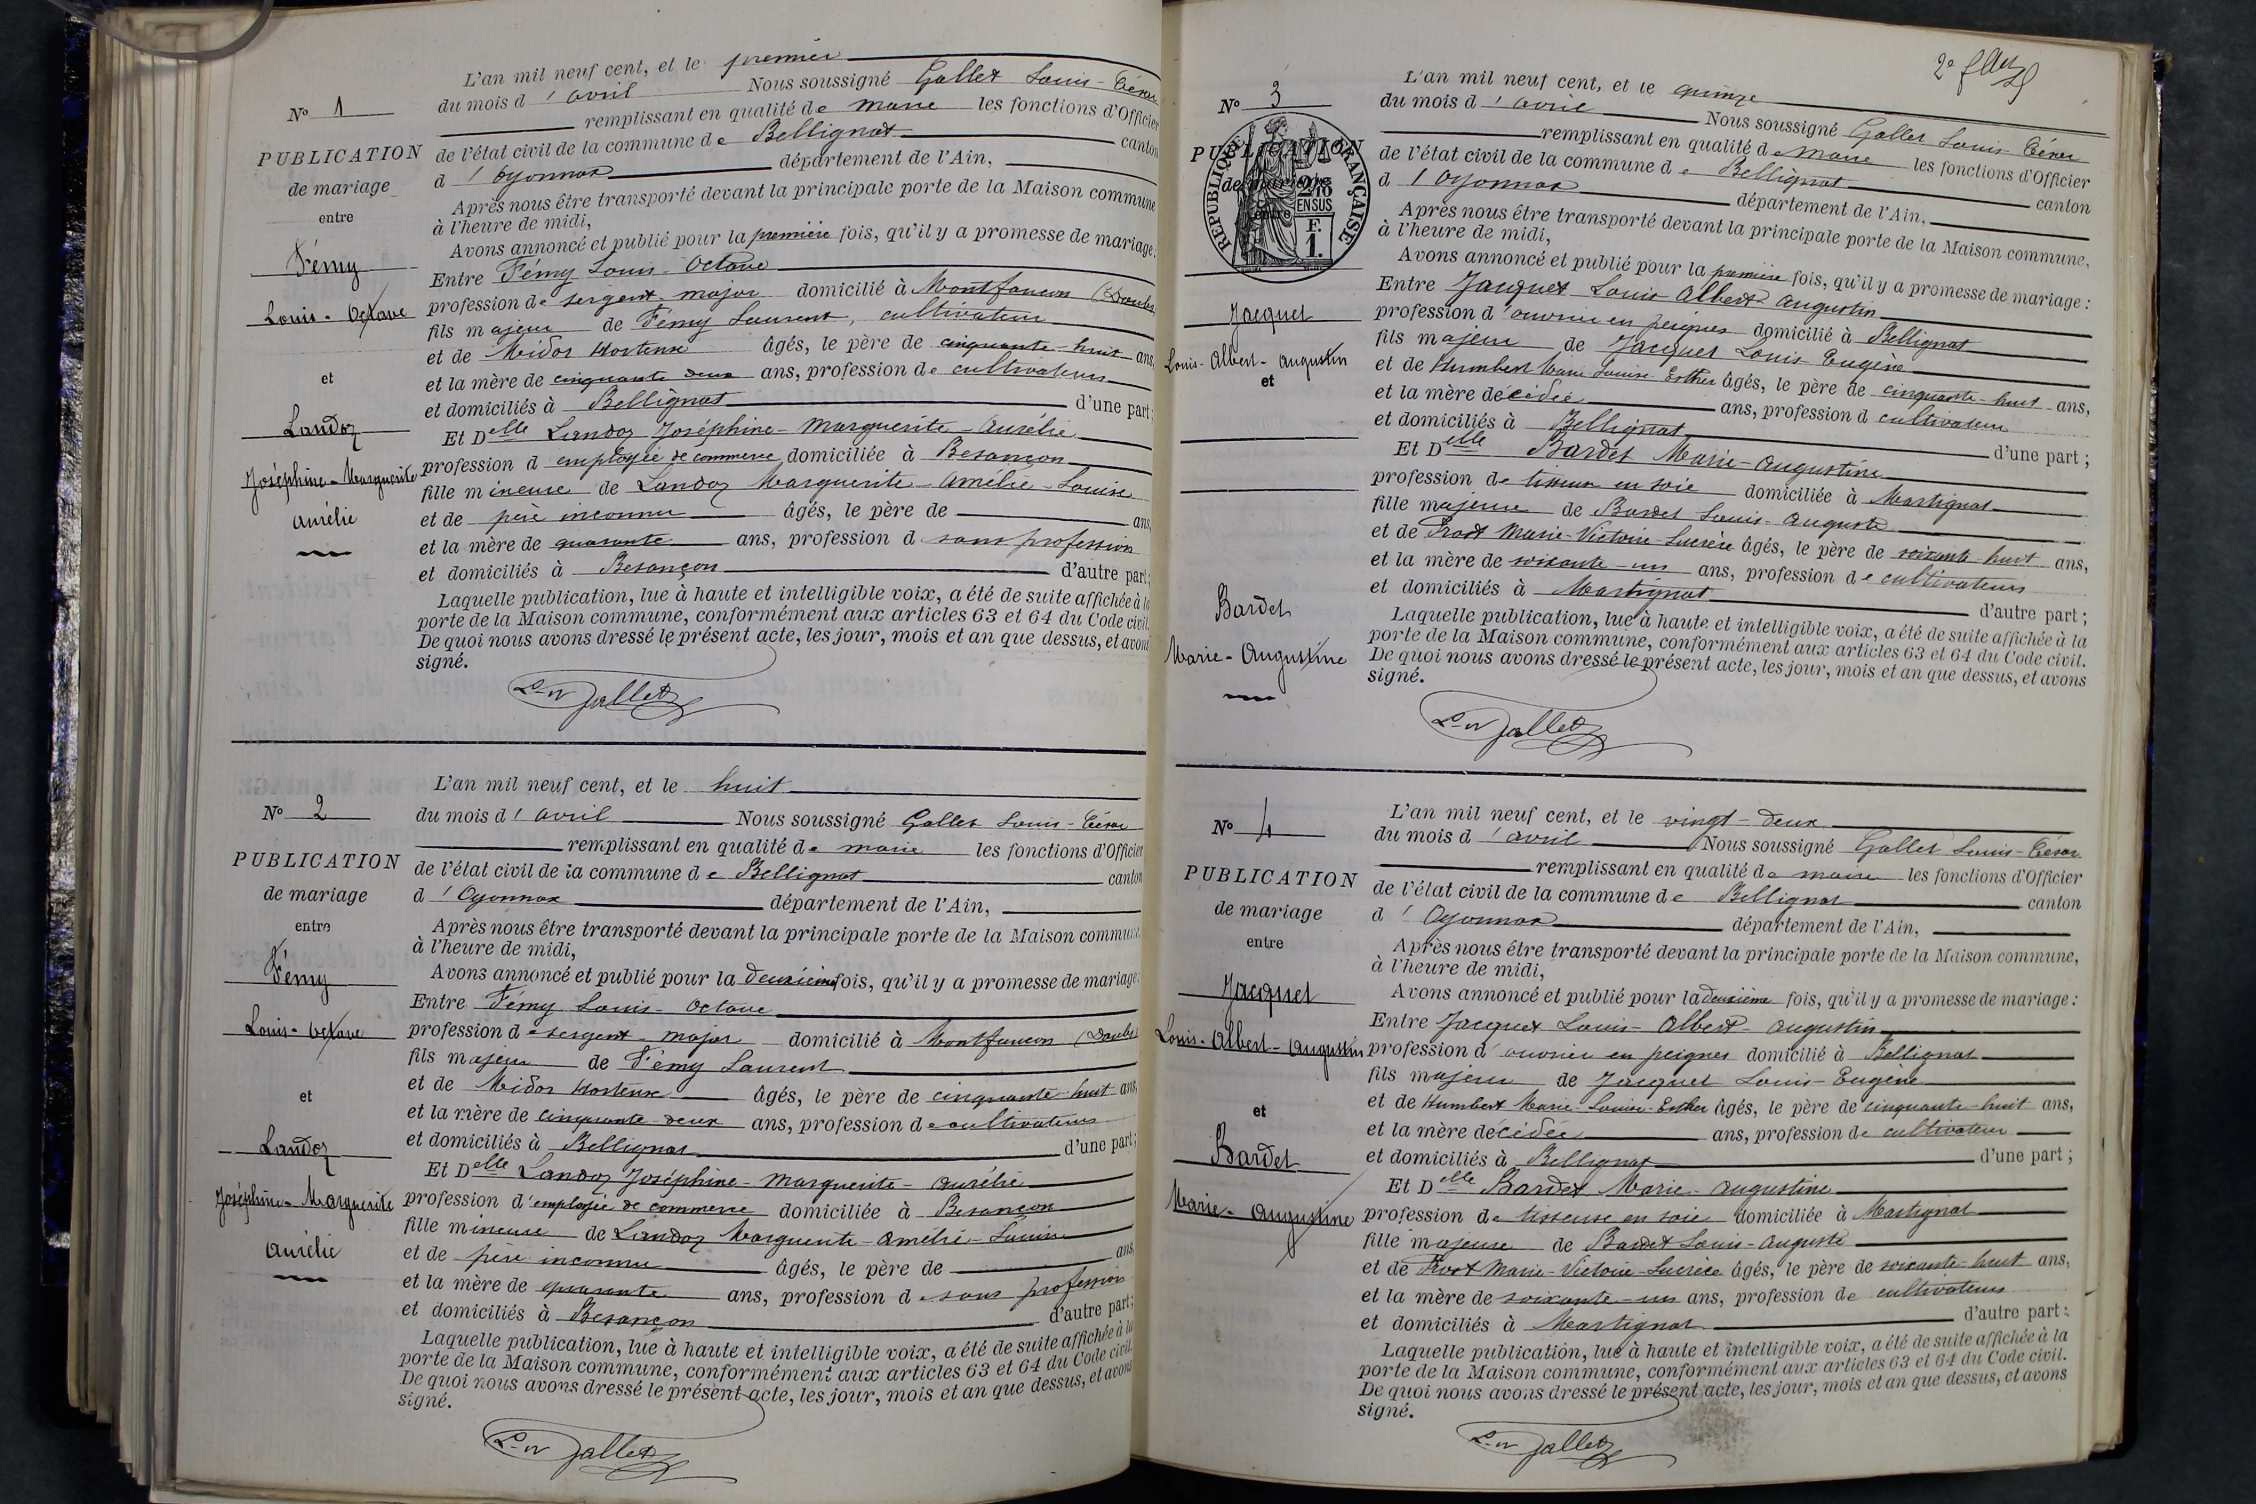 L'an mil neuf cent, et le premier
N° 1 du mois d'avril Nous soussigné Gallet Louis-César
remplissant en qualité de maire les fonctions d'Officier
PUBLICATION de l'état civil de la commune de Bellignat canton
de mariage d'Oyonnax département de l'Ain,
entre Après nous être transporté devant la principale porte de la Maison commune
à l'heure de midi,
Avons annoncé et publié pour la première fois, qu'il y a promesse de mariage:
Fémy Entre Fémy Louis-Octave
Louis-Octave profession de sergent-major domicilié à Montfaucon (Doubs
fils majeur de Fémy Laurent, cultivateur
et de Midor Hortense âgés, le père de cinquante-huit ans,
et et la mère de cinquante deux ans, profession de cultivateurs
et domiciliés à Bellignat d'une part;
Landoz Et Delle Landoz Joséphine-Marguerite-Aurélie
Joséphine-Marguerite profession d'employée de commerce domiciliée à Besançon
fille mineure de Landoz Marguerite-Amélie-Louise
Aurélie et de père inconnu âgés, le père de ans,
et la mère de quarante ans, profession d sans profession
et domiciliés à Besançon d'autre part;
Laquelle publication, lue à haute et intelligible voix, a été de suite affichée à la
porte de la Maison commune, conformément aux articles 63 et 64 du Code civil.
De quoi nous avons dressé le présent acte, les jour, mois et an que dessus, et avons
signé.
Gallet
L'an mil neuf cent, et le huit
N° 2 du mois d'avril Nous soussigné Gallet Louis-César
remplissant en qualité de maire les fonctions d'Officier
PUBLICATION de l'état civil de la commune de Bellignat canton
de mariage d'Oyonnax département de l'Ain,
entre Après nous être transporté devant la principale porte de la Maison commune
à l'heure de midi,
Fémy Avons annoncé et publié pour la deuxième fois, qu'il y a promesse de mariage:
Entre Fémy Louis-Octave
Louis-Octave profession de sergent-major domicilié à Montfaucon (Doubs)
fils majeur de Fémy Laurent
et et de Midor Hortense âgés, le père de cinquante-huit ans,
et la mère de cinquante-deux ans, profession de cultivateurs
Landoz et domiciliés à Bellignat d'une part;
Et Delle Landoz Joséphine-Marguerite-Aurélie
Joséphine-Marguerite profession d'employée de commerce domiciliée à Besançon
fille mineure de Landoz Marguerite-Amélie-Louise
Aurélie et de père inconnu âgés, le père de ans,
et la mère de quarante ans, profession de sans profession
et domiciliés à Besançon d'autre part;
Laquelle publication, lue à haute et intelligible voix, a été de suite affichée à la
porte de la Maison commune, conformément aux articles 63 et 64 du Code civil.
De quoi nous avons dressé le présent acte, les jour, mois et an que dessus, et avons
signé.
Gallet
2e
L'an mil neuf cent, et le quinze
N° 3 du mois d'avril Nous soussigné Gallet Louis-César
remplissant en qualité de maire les fonctions d'Officier
PUBLICATION de l'état civil de la commune de Bellignat canton
de mariage d'Oyonnax département de l'Ain,
entre Après nous être transporté devant la principale porte de la Maison commune,
à l'heure de midi,
RÉPUBLIQUE FRANÇAISE
2/10 EN SUS
F. 1.
Avons annoncé et publié pour la première fois, qu'il y a promesse de mariage:
Jacquet Entre Jacquet Louis Albert-Augustin
profession d'ouvrier en peignes domicilié à Bellignat
Louis-Albert-Augustin fils majeur de Jacquet Louis Eugène
et et de Humbert Marie Louise Esther âgés, le père de cinquante-huit ans,
et la mère décédée ans, profession d cultivateur
et domiciliés à Bellignat d'une part;
Et Delle Bardet Marie-Augustine
profession de tisseuse en soie domiciliée à Martignat
fille majeure de Bardet Louis-Auguste
et de Prost Marie-Victoire-Lucrèce âgés, le père de soixante-huit ans,
et la mère de soixante-un ans, profession de cultivateurs
Bardet et domiciliés à Martignat d'autre part;
Laquelle publication, lue à haute et intelligible voix, a été de suite affichée à la
Marie-Augustine porte de la Maison commune, conformément aux articles 63 et 64 du Code civil.
De quoi nous avons dressé le présent acte, les jour, mois et an que dessus, et avons
signé.
Gallet
L'an mil neuf cent, et le vingt-deux
N° 4 du mois d'avril Nous soussigné Gallet Louis-César
remplissant en qualité de maire les fonctions d'Officier
PUBLICATION de l'état civil de la commune de Bellignat canton
de mariage d'Oyonnax département de l'Ain,
entre Après nous être transporté devant la principale porte de la Maison commune,
à l'heure de midi,
Jacquet Avons annoncé et publié pour la deuxième fois, qu'il y a promesse de mariage:
Entre Jacquet Louis-Albert-Augustin
Louis-Albert-Augustin profession d'ouvrier en peignes domicilié à Bellignat
fils majeur de Jacquet Louis-Eugène
et et de Humbert Marie-Louise-Esther âgés, le père de cinquante-huit ans,
et la mère décédée ans, profession de cultivateur
Bardet et domiciliés à Bellignat d'une part;
Et Delle Bardet Marie-Augustine
Marie-Augustine profession de tisseuse en soie domiciliée à Martignat
fille majeure de Bardet Louis-Auguste
et de Prost Marie-Victoire-Lucrèce âgés, le père de soixante-huit ans,
et la mère de soixante-un ans, profession de cultivateurs
et domiciliés à Martignat d'autre part:
Laquelle publication, lue à haute et intelligible voix, a été de suite affichée à la
porte de la Maison commune, conformément aux articles 63 et 64 du Code civil.
De quoi nous avons dressé le présent acte, les jour, mois et an que dessus, et avons
signé.
Gallet